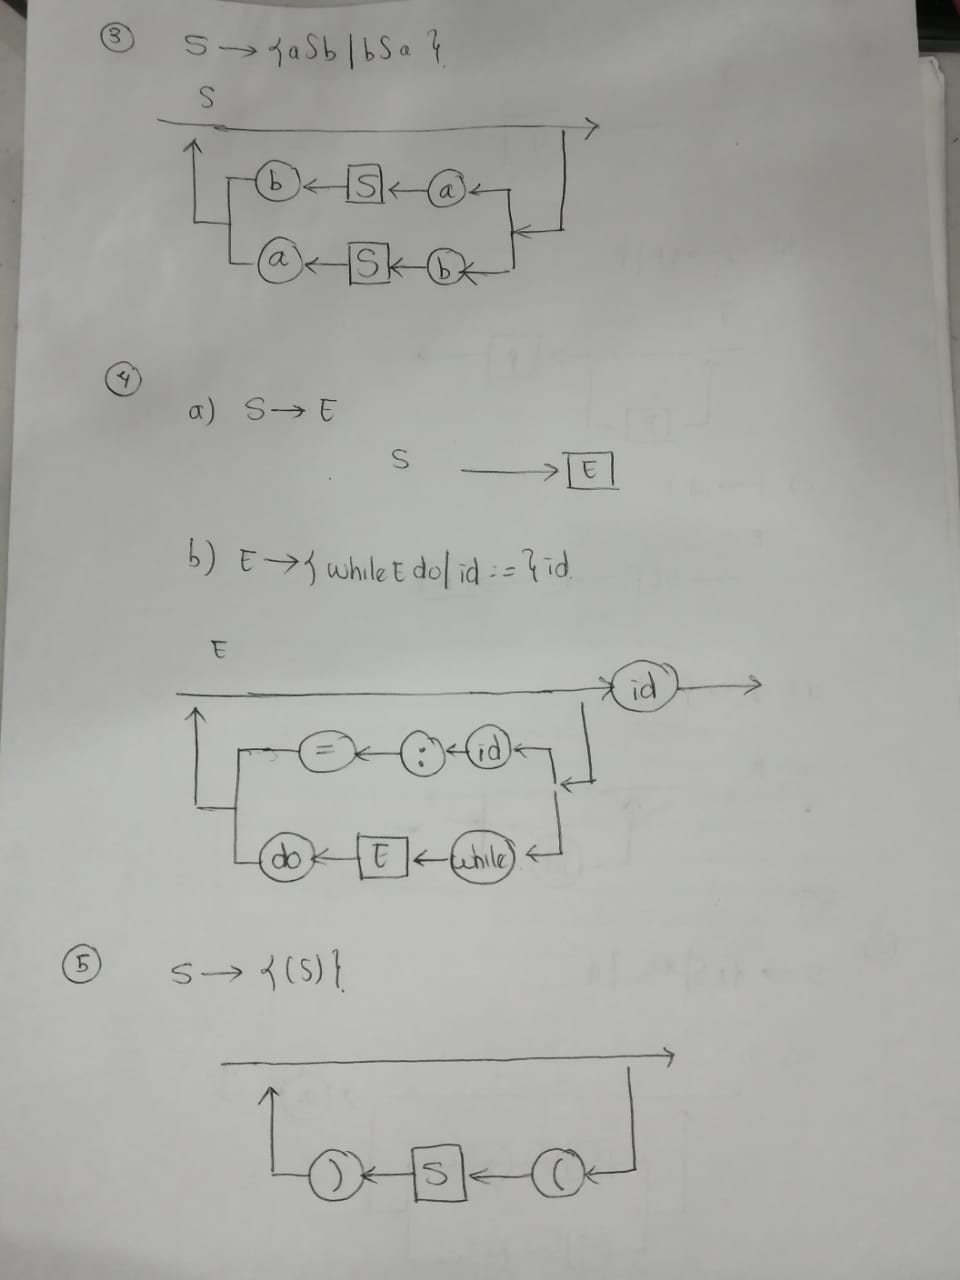 ③ S → {aSb | bSa}
S
b ← S ← a
a ← S ← b
④
a) S → E
S → E
b) E → { while E do | id := } id
E
id
= ← : ← id
do ← E ← while
⑤ S → {(S)}
) ← S ← (